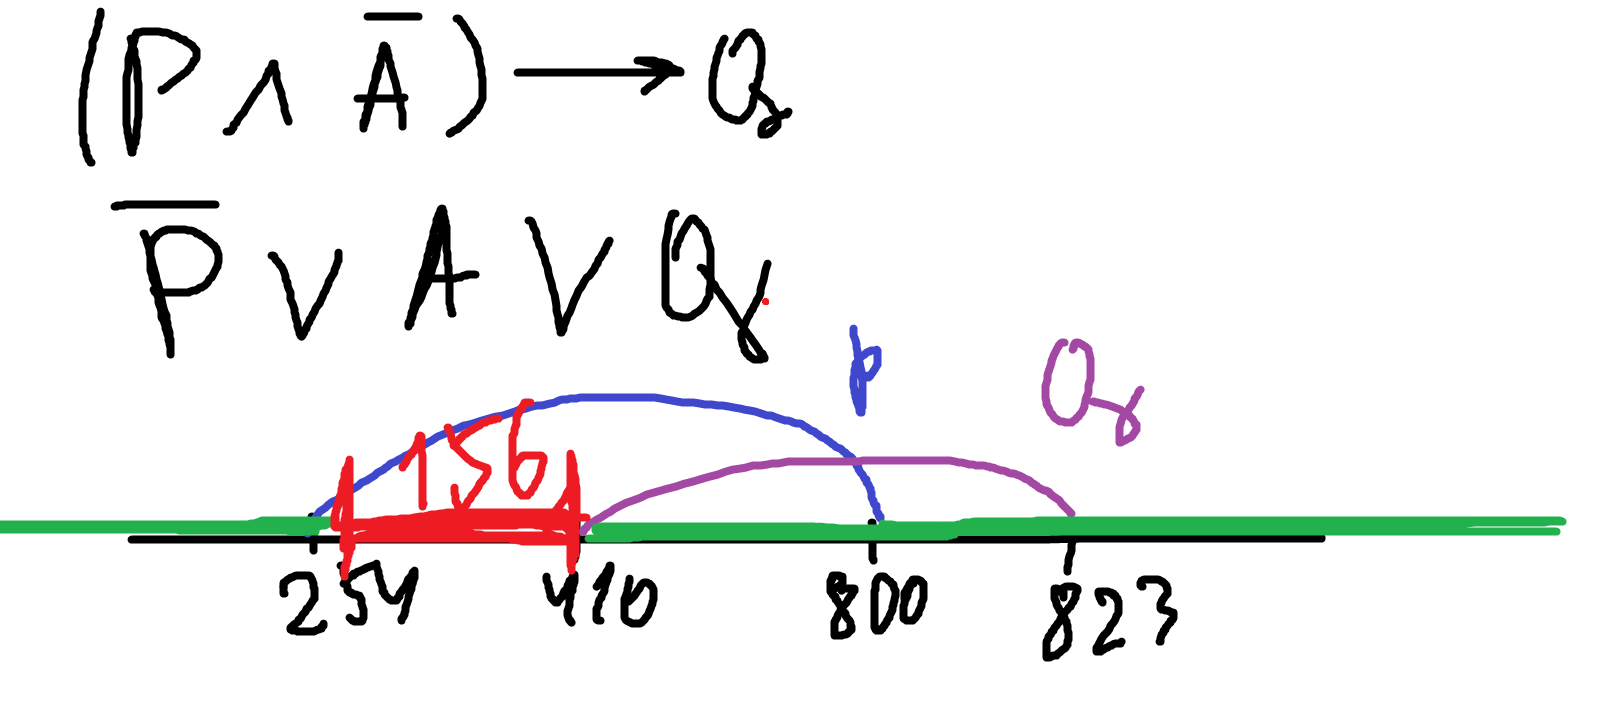 (P ∧ A̅) → Q
P̅ ∨ A ∨ Q
P
Q
156
254 410 800 823